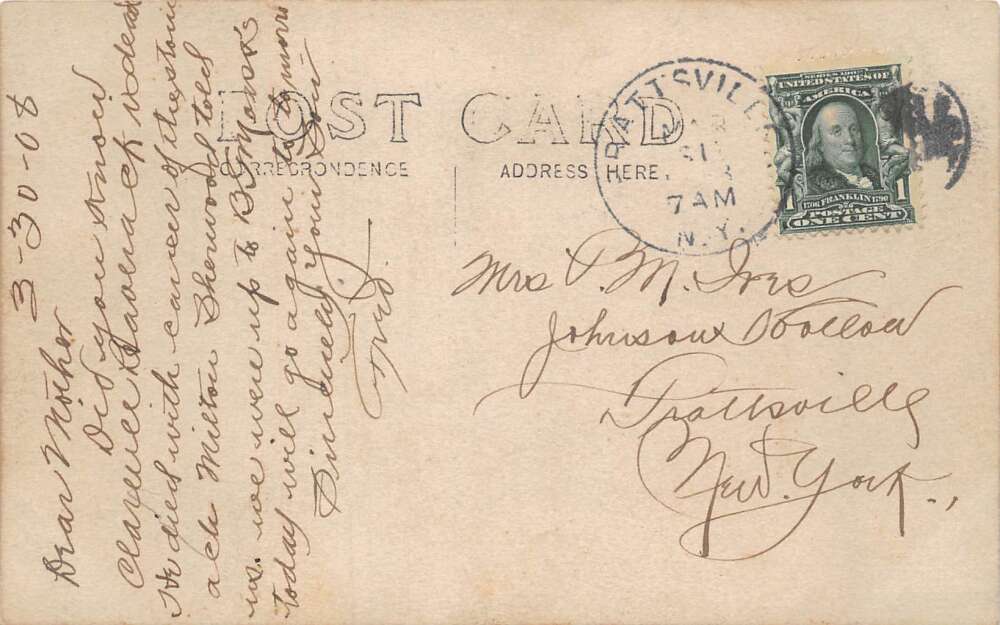 3-30-08
Dear Mother
Did you know
Clarence is dead
He died with cancer of the stom
ach Milton Sherwood told
us. we were up to B. Monks
today will go again tomorr
Sincerely Your Son
Fred.
POST CARD
CORRESPONDENCE
ADDRESS HERE.
PRATTSVILLE
MAR
31
7 AM
N.Y.
SERIES 1902
UNITED STATES OF
AMERICA
1706 FRANKLIN 1790
1 1
POSTAGE
ONE CENT
Mrs P. M. Ives
Johnson Hollow
Prattsville
New York.,